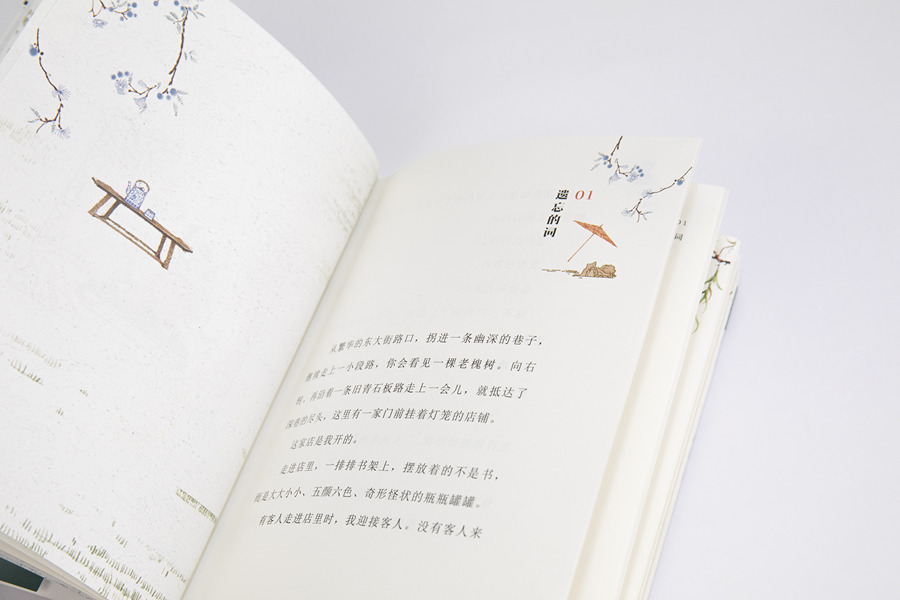 01
遗忘的词
从繁华的东大街路口，拐进一条幽深的巷子，
继续走上一小段路，你会看见一棵老槐树。向右
转，再沿着一条旧青石板路走上一会儿，就抵达了
深巷的尽头，这里有一家门前挂着灯笼的店铺。
这家店是我开的。
走进店里，一排排书架上，摆放着的不是书，
而是大大小小、五颜六色、奇形怪状的瓶瓶罐罐。
有客人走进店里时，我迎接客人。没有客人来
01
词